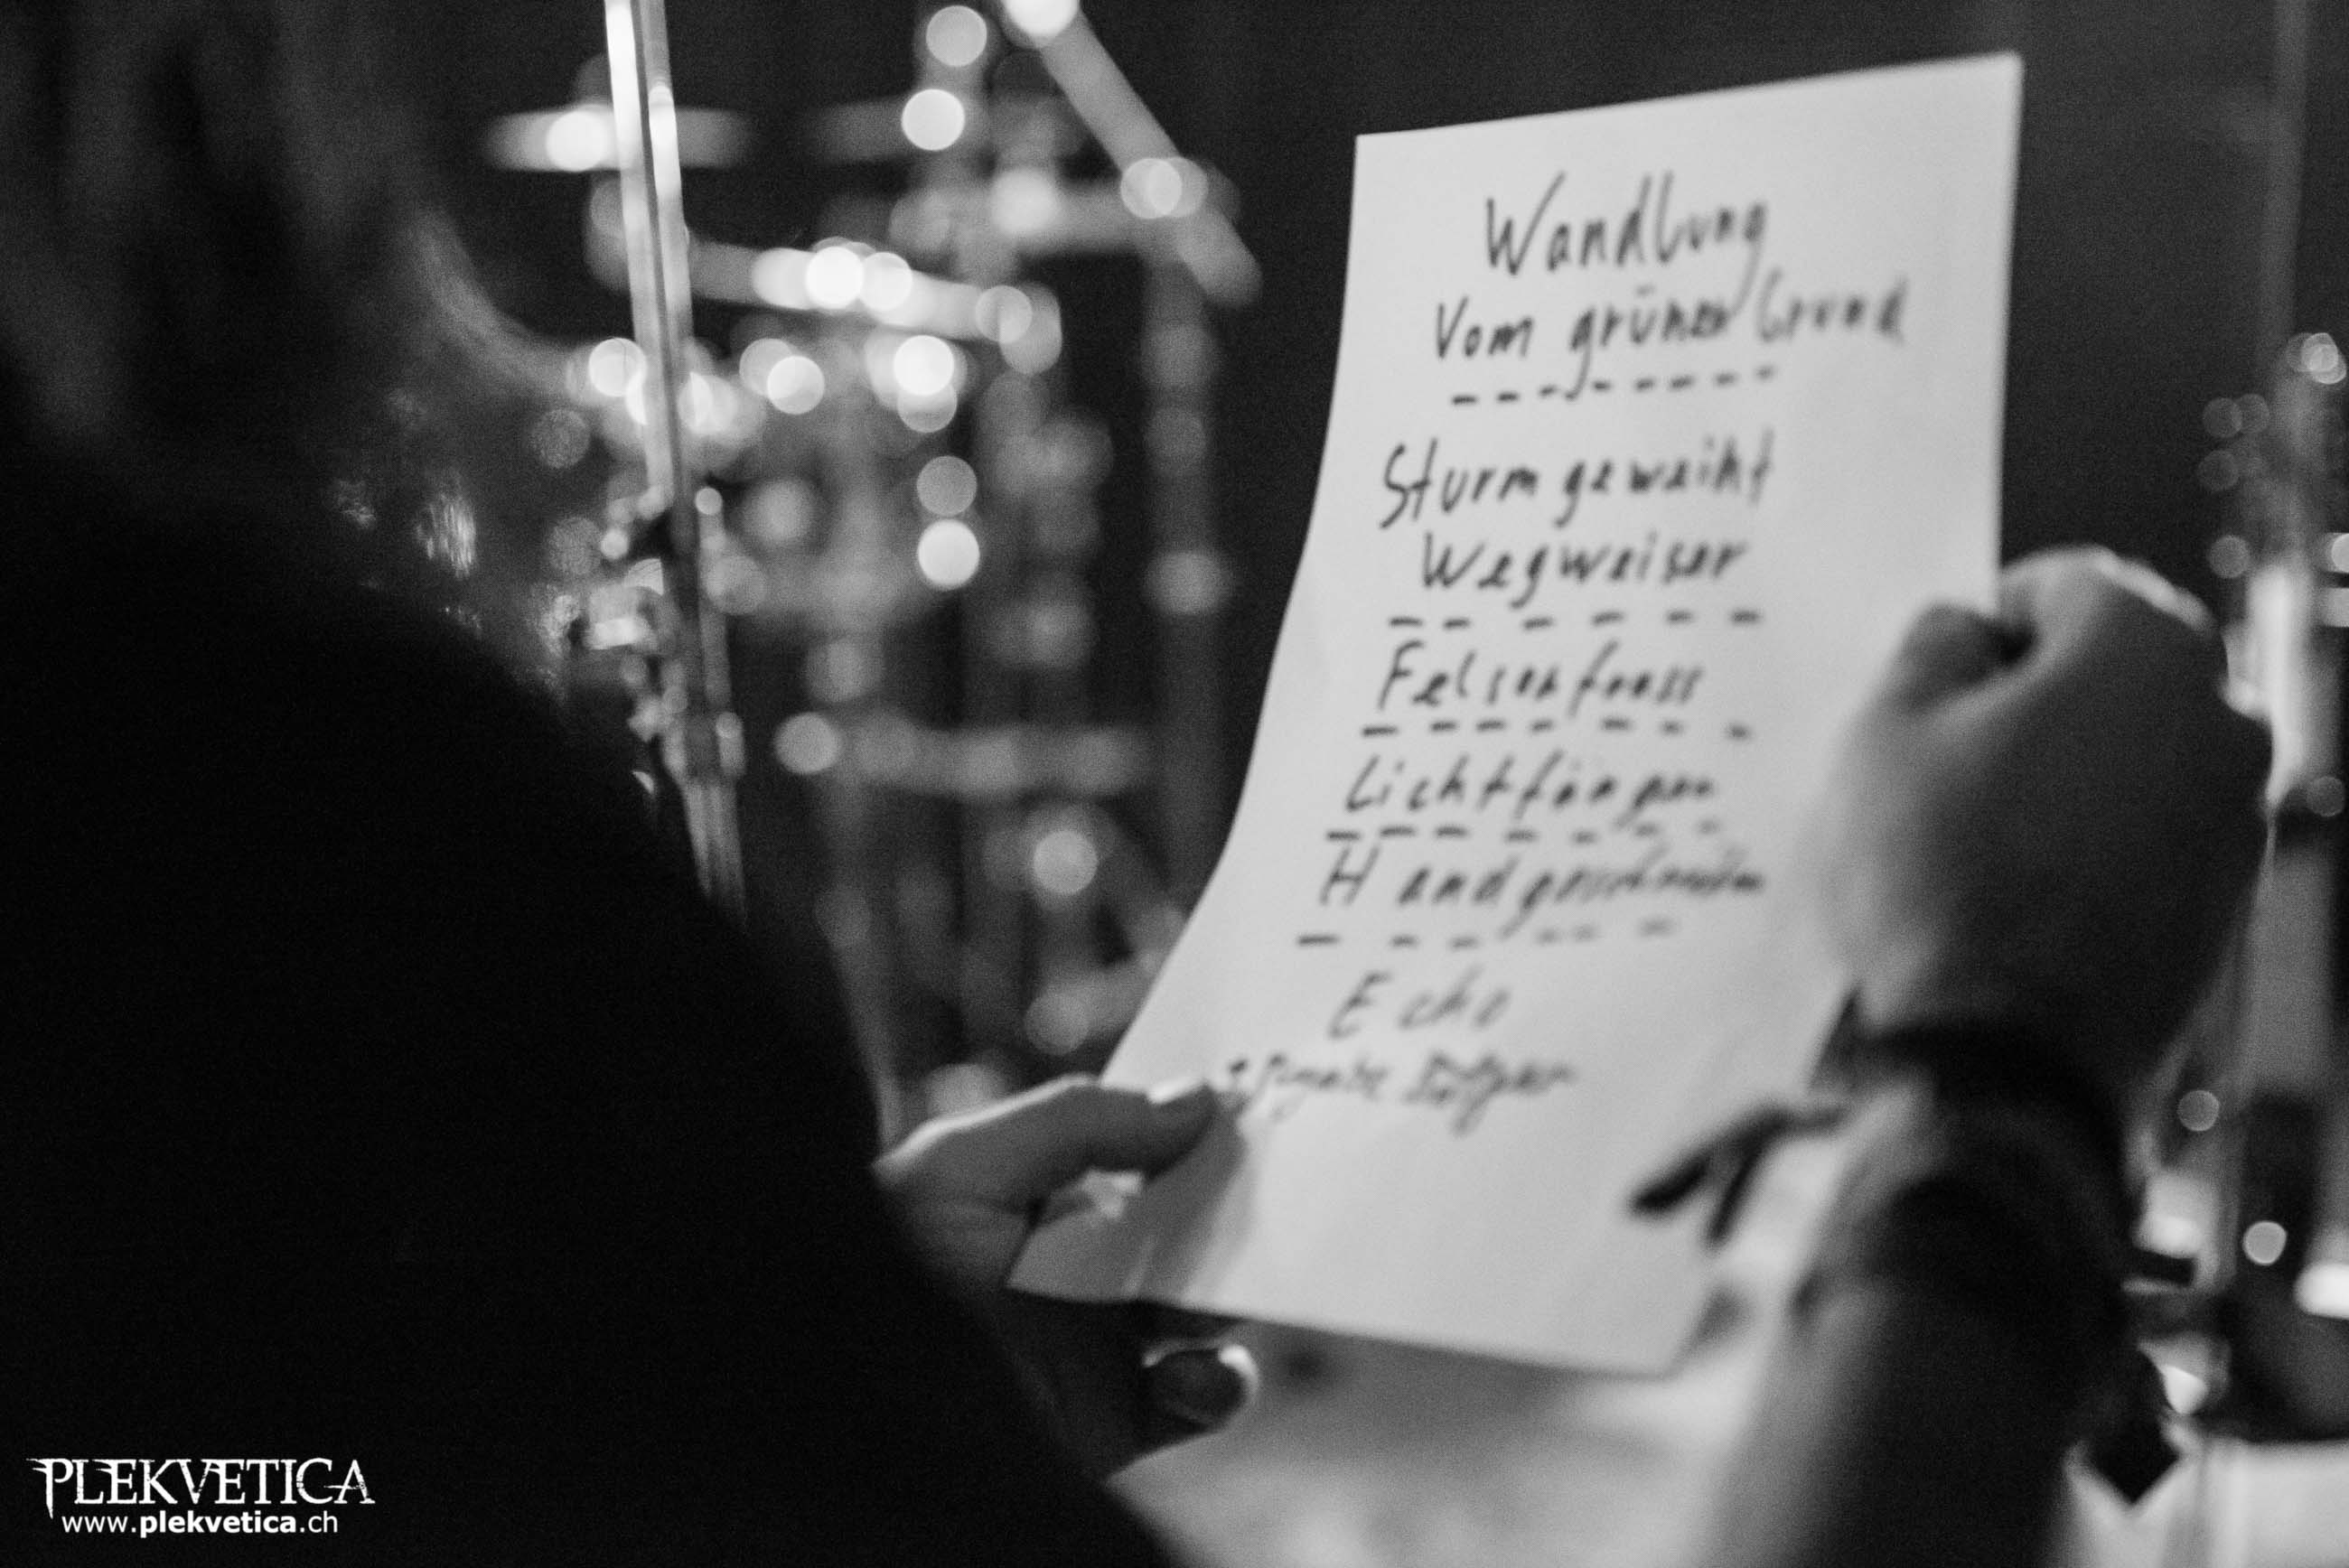 Wandlung
Vom grünen Grund
Sturmgeweiht
Wegweiser
Felsenfauss
Lichtfänger
Echo
PLEKVETICA
www.plekvetica.ch